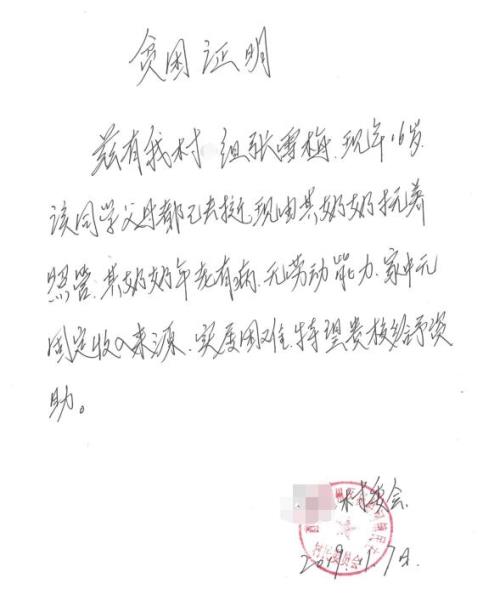 贫困证明
兹有我村 组张雪梅,现年16岁.
该同学父母都已去逝,现由其奶奶抚养
照管.其奶奶年老有病.无劳动能力.家中无
固定收入来源.实属困难.特望贵校给予资
助。
村委会.
2019.1.7日.